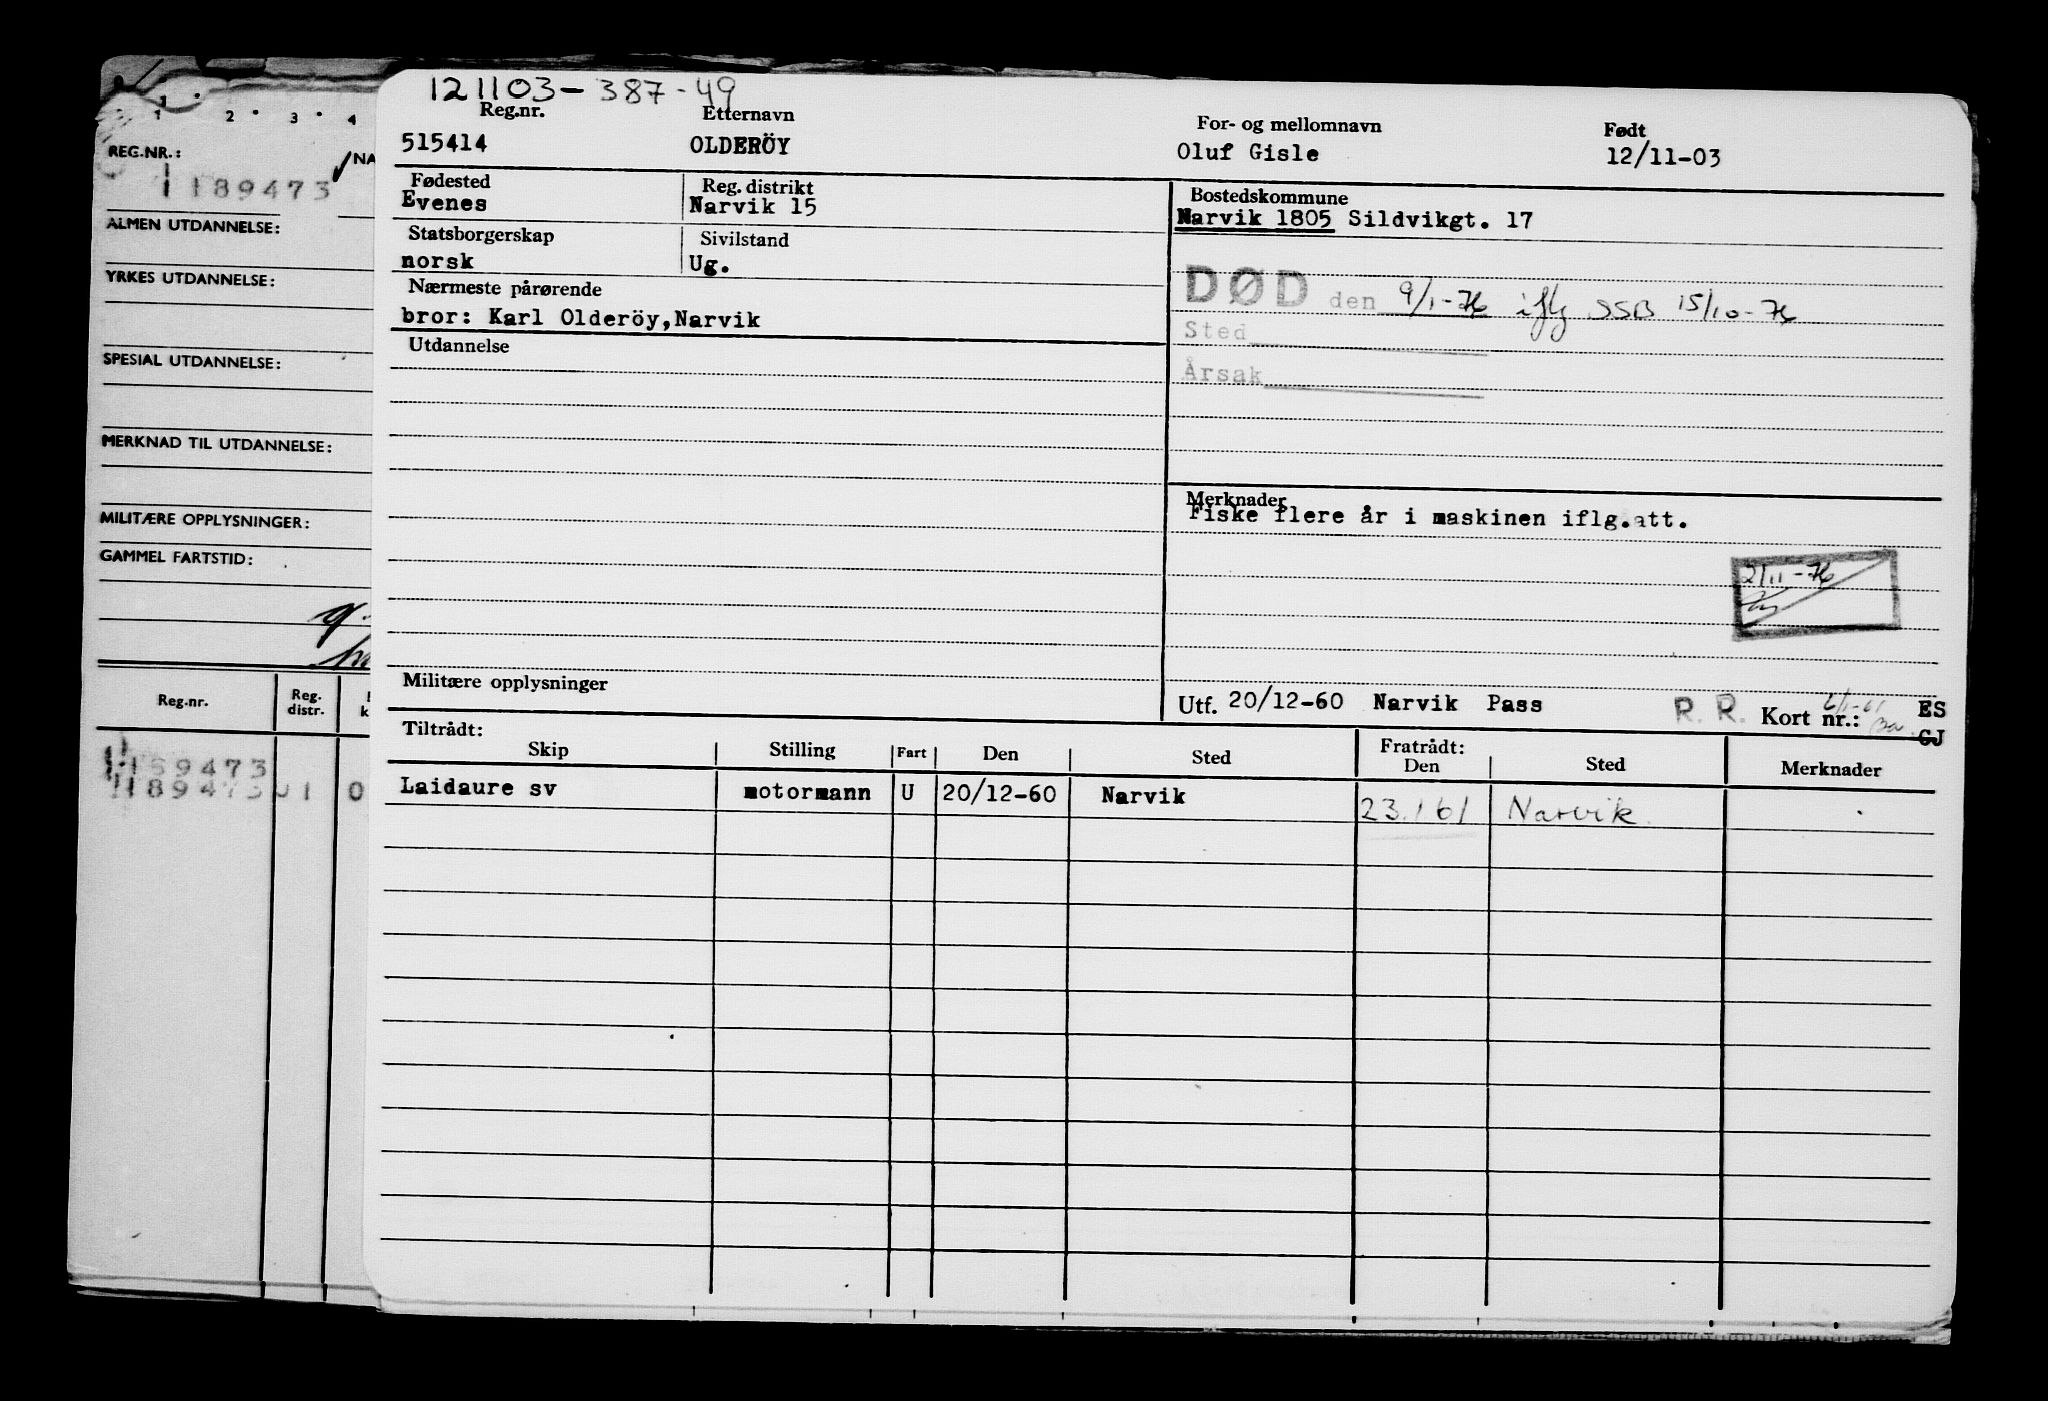 121103-387-49
Reg.nr. Etternavn For- og mellomnavn Født
515414 OLDERÖY Oluf Gisle 12/11-03
Fødested Reg. distrikt Bostedskommune
Evenes Narvik 15 Narvik 1805 Sildvikgt. 17
Statsborgerskap Sivilstand
norsk Ug.
DØD den 9/1-76 iflg SSB 15/10-76
Nærmeste pårørende
bror: Karl Olderöy,Narvik
Sted
Utdannelse
Årsak
Merknader
Fiske flere år i maskinen iflg.att.
2/11-76
Militære opplysninger
Utf. 20/12-60 Narvik Pass R. R. Kort nr.: 6/1-61 ES
GJ
Tiltrådt: Fratrådt:
Skip Stilling Fart Den Sted Den Sted Merknader
Laidaure sv motormann U 20/12-60 Narvik 23.1 61 Narvik.
1 2 3 4
REG.NR.: NA
189473
ALMEN UTDANNELSE:
YRKES UTDANNELSE:
SPESIAL UTDANNELSE:
MERKNAD TIL UTDANNELSE:
MILITÆRE OPPLYSNINGER:
GAMMEL FARTSTID:
Reg.nr. Reg. distr.
189473